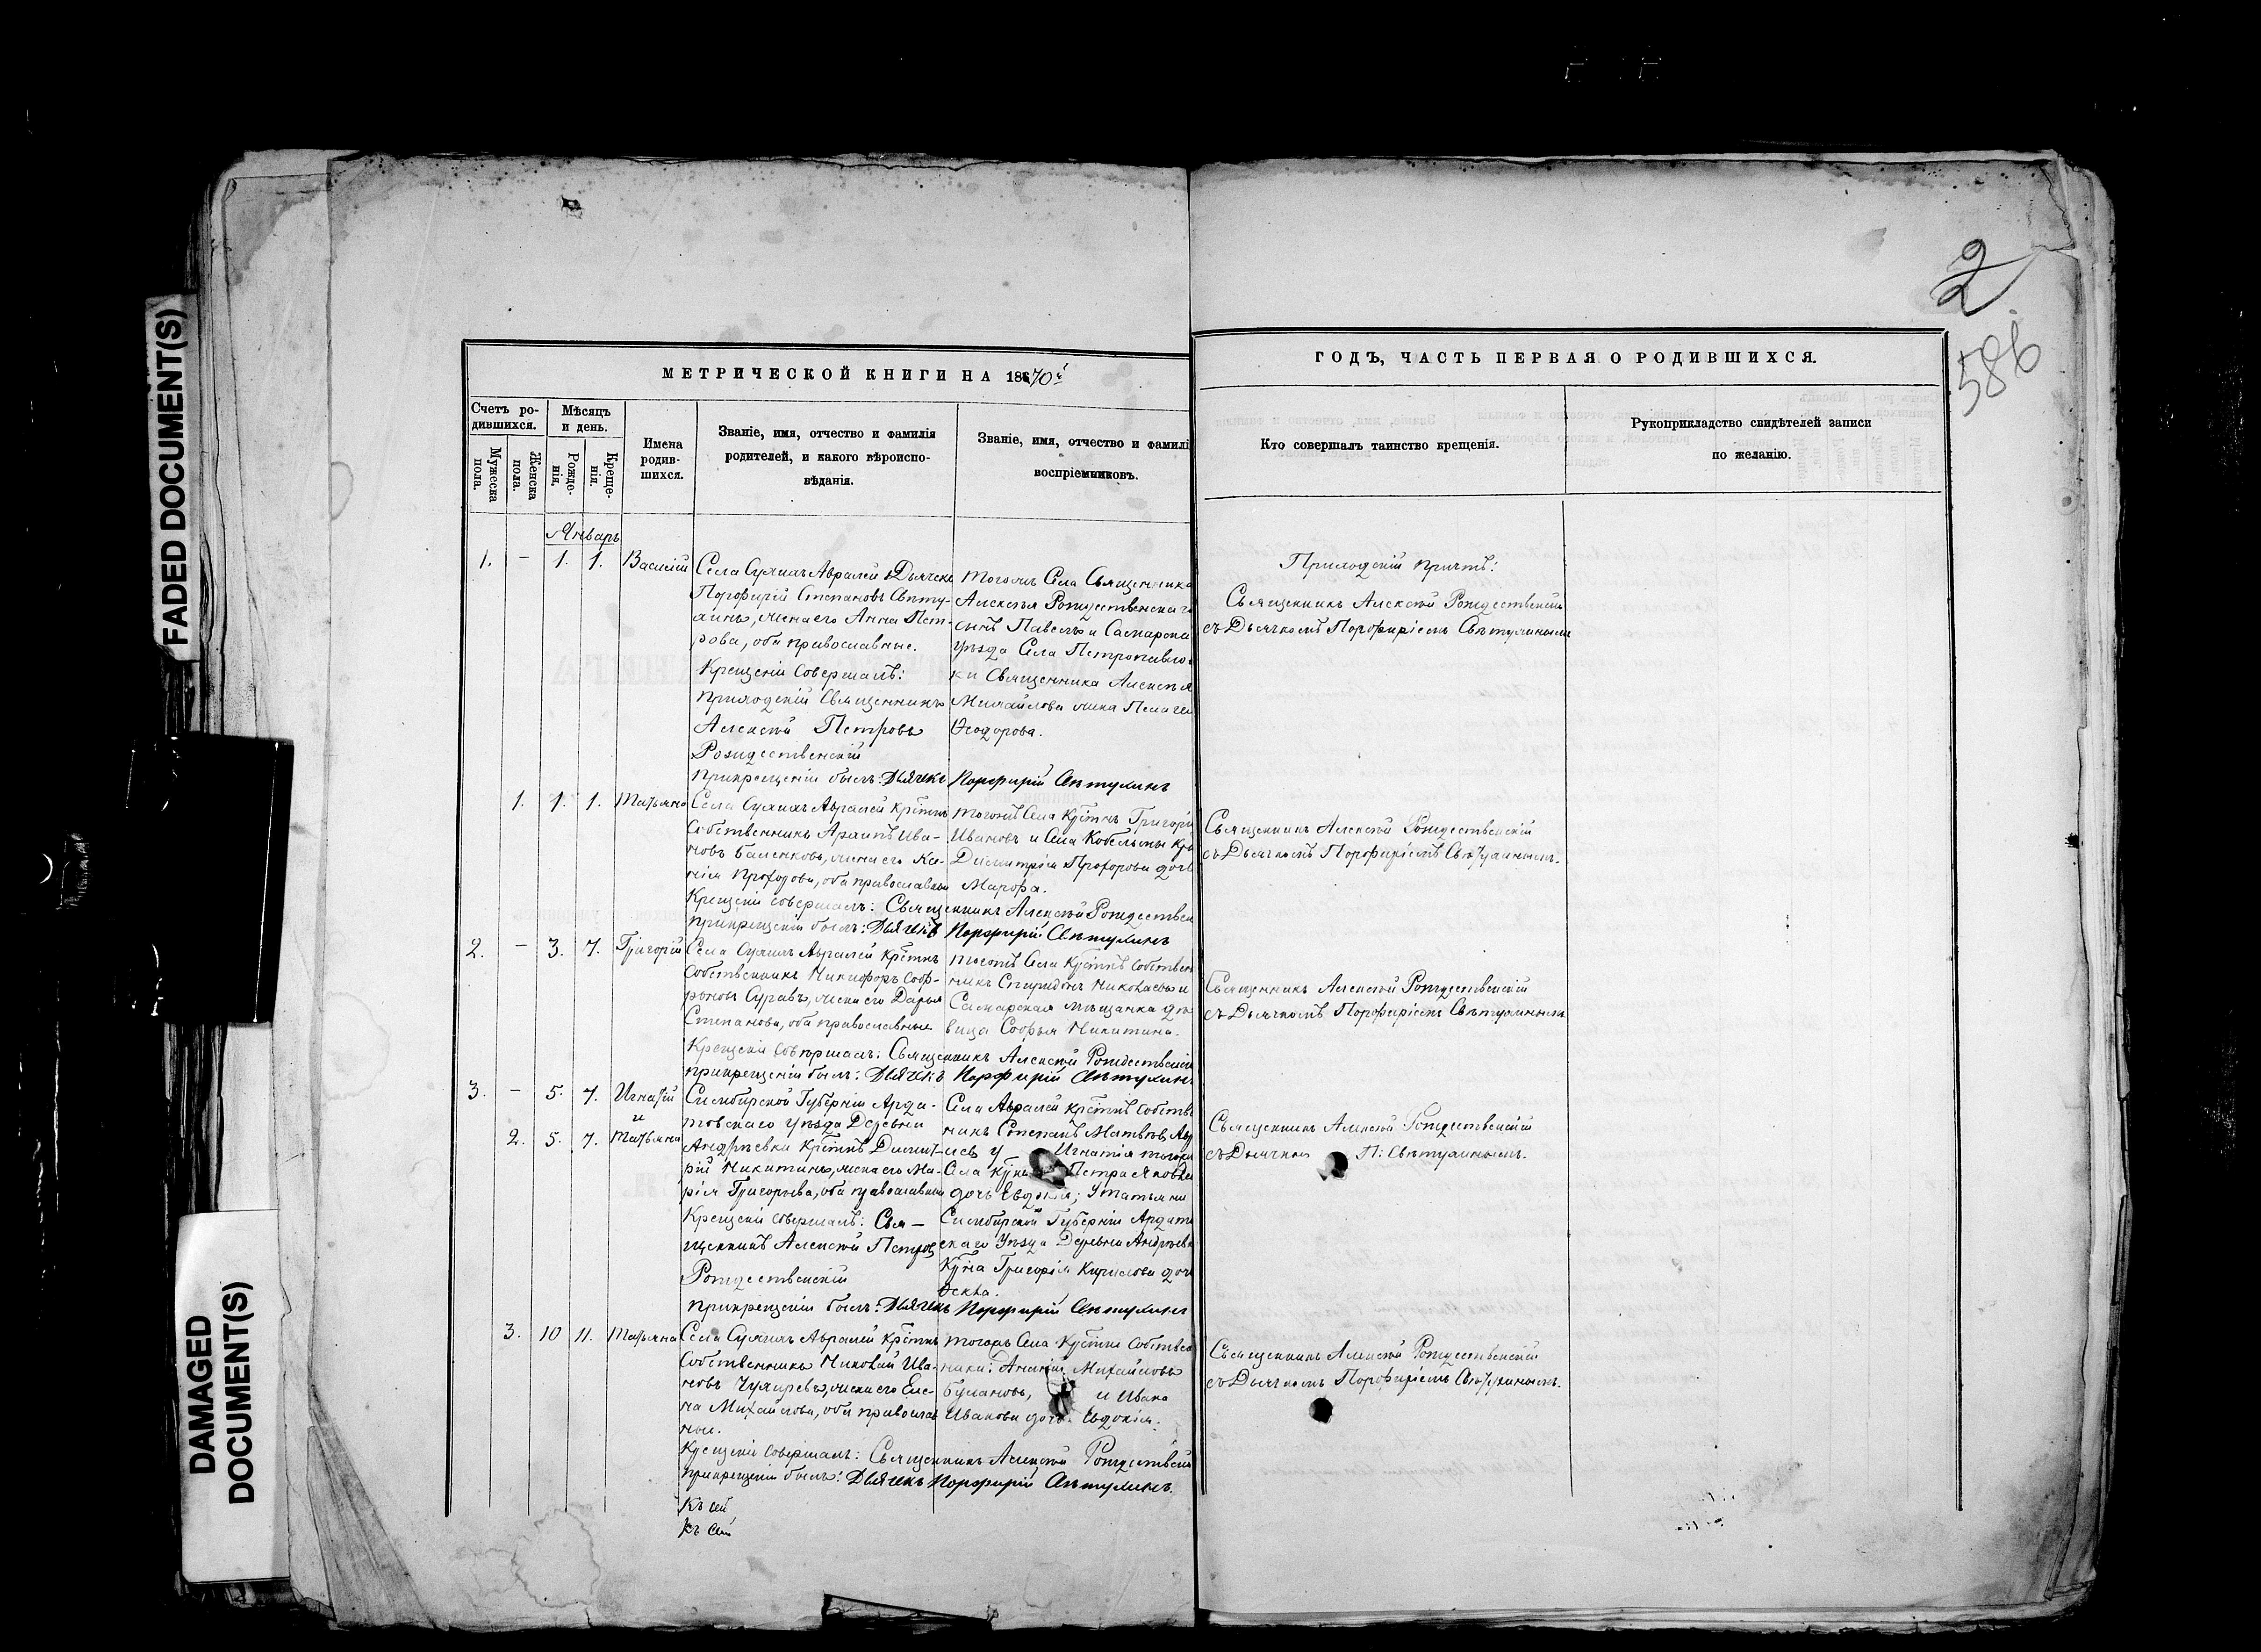 2
586
МЕТРИЧЕСКОЙ КНИГИ НА 1870й
ГОДЪ, ЧАСТЬ ПЕРВАЯ О РОДИВШИХСЯ.
Счетъ ро-
дившихся.
Мужеска
пола.
Женска
пола.
Мѣсяцъ
и день.
Рожде-
нія.
Креще-
нія.
Имена
родив-
шихся.
Званіе, имя, отчество и фамилія
родителей, и какого вѣроиспо-
вѣданія.
Званіе, имя, отчество и фамилі
воспріемниковъ.
Кто совершалъ таинство крещенія.
Рукоприкладство свидѣтелей записи
по желанію.
Январь
1. – 1. 1. Василій
Села Сухихъ Авралей Дьячекъ
Порфирій Степановъ Свѣту-
хинъ, жена его Анна Пет-
рова, оба православные.
Крещеніе совершалъ:
приходскій Священникъ
Алексѣй Петровъ
Рождественскій
при крещеніи былъ: Дьячекъ Порфирій Свѣтухинъ
тогожъ Села Священника
Алексѣя Рождественскаго
сынъ Павелъ и Самарска
уѣзда Села Петропавлов
ки Священника Алексѣя
Михайлова жена Пелагея
Ѳеодорова.
Приходскій причтъ:
Священникъ Алексѣй Рождественскій
съ Дьячкомъ Порфиріемъ Свѣтухинымъ
1. 1. 1. Татьяна
Села Сухихъ Авралей крѣстнъ
Собственникъ Архипъ Ива-
новъ Баленковъ, жена его Ксе-
нія Прохорова, оба православные
Крещеніе совершалъ: Священникъ Алексѣй Рождествен
при крещеніи былъ: Дьячекъ Порфирій Свѣтухинъ
тогожъ Села Крѣстнъ Григорій
Ивановъ и Села Кобельмы кр
Димитрія Прохорова дочь
Марфа.
Священникъ Алексѣй Рождественскій
съ Дьячкомъ Порфиріемъ Свѣтухинымъ.
2. – 3. 7. Григорій
Села Сухихъ Авралей крѣстнъ
Собственникъ Никифоръ Соф-
роновъ Суравъ, жена его Дарья
Степанова, оба православные
Крещеніе совершалъ: Священникъ Алексѣй Рождественскій
при крещеніи былъ: Дьячекъ Порфирій Свѣтухинъ
тогожъ Села Крѣстнъ Собствен
никъ Спиридонъ Николаевъ и
Самарская мѣщанка дѣ
вица Софья Никитина.
Священникъ Алексѣй Рождественскій
съ Дьячкомъ Порфиріемъ Свѣтухинымъ
3. – 5. 7. Игнатій
и
2. 5. 7. Татьяна
Симбирской Губерніи Арда-
товскаго уѣзда Деревни
Андреевки Крѣстнъ Димит-
рій Никитинъ, жена его Ма-
рія Григорьева, оба православные
Крещеніе совершалъ: Свя-
щенникъ Алексѣй Петровъ
Рождественскій
при крещеніи былъ: Дьячекъ Порфирій Свѣтухинъ
Села Авралей крѣстнъ Собств
никъ Степанъ Матвѣевъ
у Игнатія тогожъ
Села Петра Яковлева
дочь Евдокія; У Татьяны
Симбирской Губерніи Ардат
скаго Уѣзда Деревни Андреевки
Григорія Кирилова доч
Ѳекла.
Священникъ Алексѣй Рождественскій
съ Дьячкомъ П: Свѣтухинымъ.
3. 10 11. Татьяна
Села Сухихъ Авралей крѣстнъ
Собственникъ Николай Ива-
новъ Чухаревъ, жена его Еле-
на Михайлова, оба православ
ные.
Крещеніе совершалъ: Священникъ Алексѣй Рождествен
при крещеніи былъ: Дьячекъ Порфирій Свѣтухинъ.
тогожъ Села Крѣстне Собствен
ники: Ананій Михайловъ
Булановъ, и Ивана
Иванова дочь Евдокія.
Священникъ Алексѣй Рождественскій
съ Дьячкомъ Порфиріемъ Свѣтухинымъ.
Къ сей
Къ сей
FADED DOCUMENT(S)
DAMAGED
DOCUMENT(S)